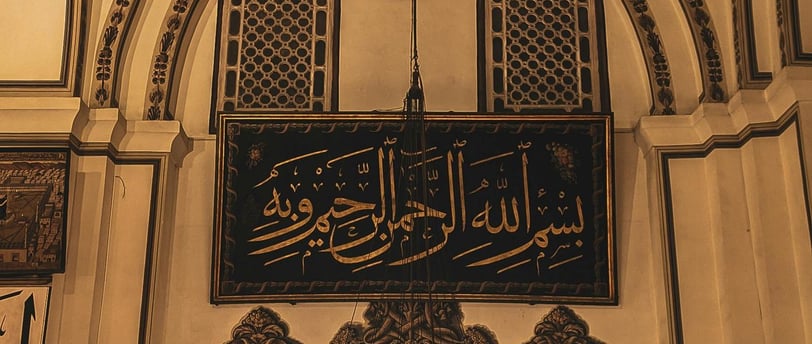 بِسْمِ اللّٰهِ الرَّحْمٰنِ الرَّحِيمِ وَبِهِ